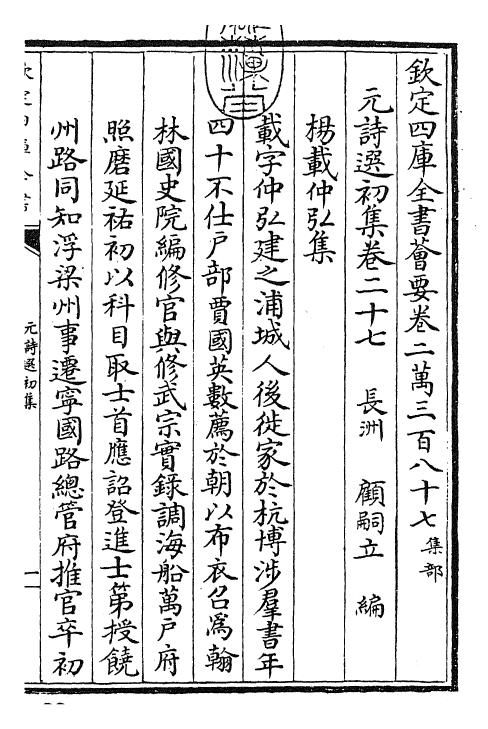 欽定四庫全書薈要卷二萬三百八十七 集部
元詩選初集卷二十七 長洲 顧嗣立 編
楊載仲弘集
載字仲弘建之浦城人後徙家於杭博涉羣書年
四十不仕户部賈國英數薦於朝以布衣召爲翰
林國史院編修官與修武宗實録調海船萬户府
照磨延祐初以科目取士首應詔登進士第授饒
州路同知浮梁州事遷寧國路總管府推官卒初
元詩選初集
一